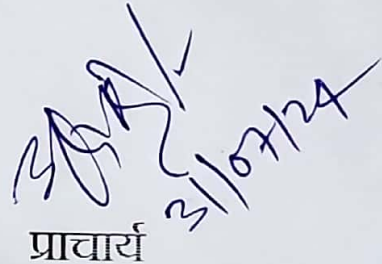 31/07/24
प्राचार्य